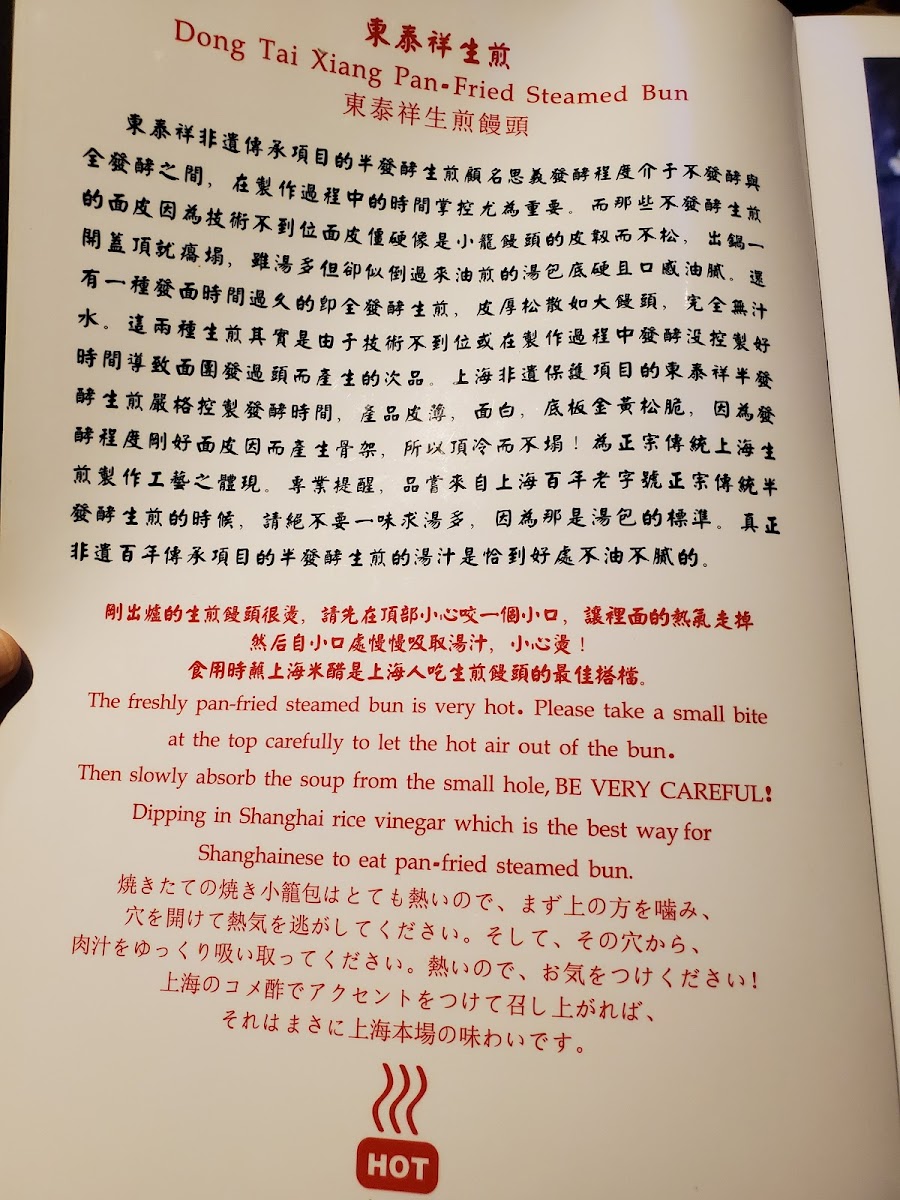 東泰祥生煎
Dong Tai Xiang Pan-Fried Steamed Bun
東泰祥生煎饅頭
東泰祥非遺傳承項目的半發酵生煎顧名思義發酵程度介于不發酵與
全發酵之間，在製作過程中的時間掌控尤為重要。而那些不發酵生煎
的面皮因為技術不到位面皮僵硬像是小籠饅頭的皮韌而不松，出鍋一
開蓋頂就癟塌，雖湯多但卻似倒過來油煎的湯包底硬且口感油膩。還
有一種發面時間過久的即全發酵生煎，皮厚松散如大饅頭，完全無汁
水。這兩種生煎其實是由于技術不到位或在製作過程中發酵没控製好
時間導致面團發過頭而產生的次品。上海非遺保護項目的東泰祥半發
酵生煎嚴格控製發酵時間，產品皮薄，面白，底板金黃松脆，因為發
酵程度剛好面皮因而產生骨架，所以頂冷而不塌！為正宗傳統上海生
煎製作工藝之體現。專業提醒，品嘗來自上海百年老字號正宗傳統半
發酵生煎的時候，請絕不要一味求湯多，因為那是湯包的標準。真正
非遺百年傳承項目的半發酵生煎的湯汁是恰到好處不油不膩的。
剛出爐的生煎饅頭很燙，請先在頂部小心咬一個小口，讓裡面的熱氣走掉
然后自小口處慢慢吸取湯汁，小心燙！
食用時蘸上海米醋是上海人吃生煎饅頭的最佳搭檔。
The freshly pan-fried steamed bun is very hot. Please take a small bite
at the top carefully to let the hot air out of the bun.
Then slowly absorb the soup from the small hole, BE VERY CAREFUL!
Dipping in Shanghai rice vinegar which is the best way for
Shanghainese to eat pan-fried steamed bun.
焼きたての焼き小籠包はとても熱いので、まず上の方を噛み、
穴を開けて熱気を逃がしてください。そして、その穴から、
肉汁をゆっくり吸い取ってください。熱いので、お気をつけください!
上海のコメ酢でアクセントをつけて召し上がれば、
それはまさに上海本場の味わいです。
HOT